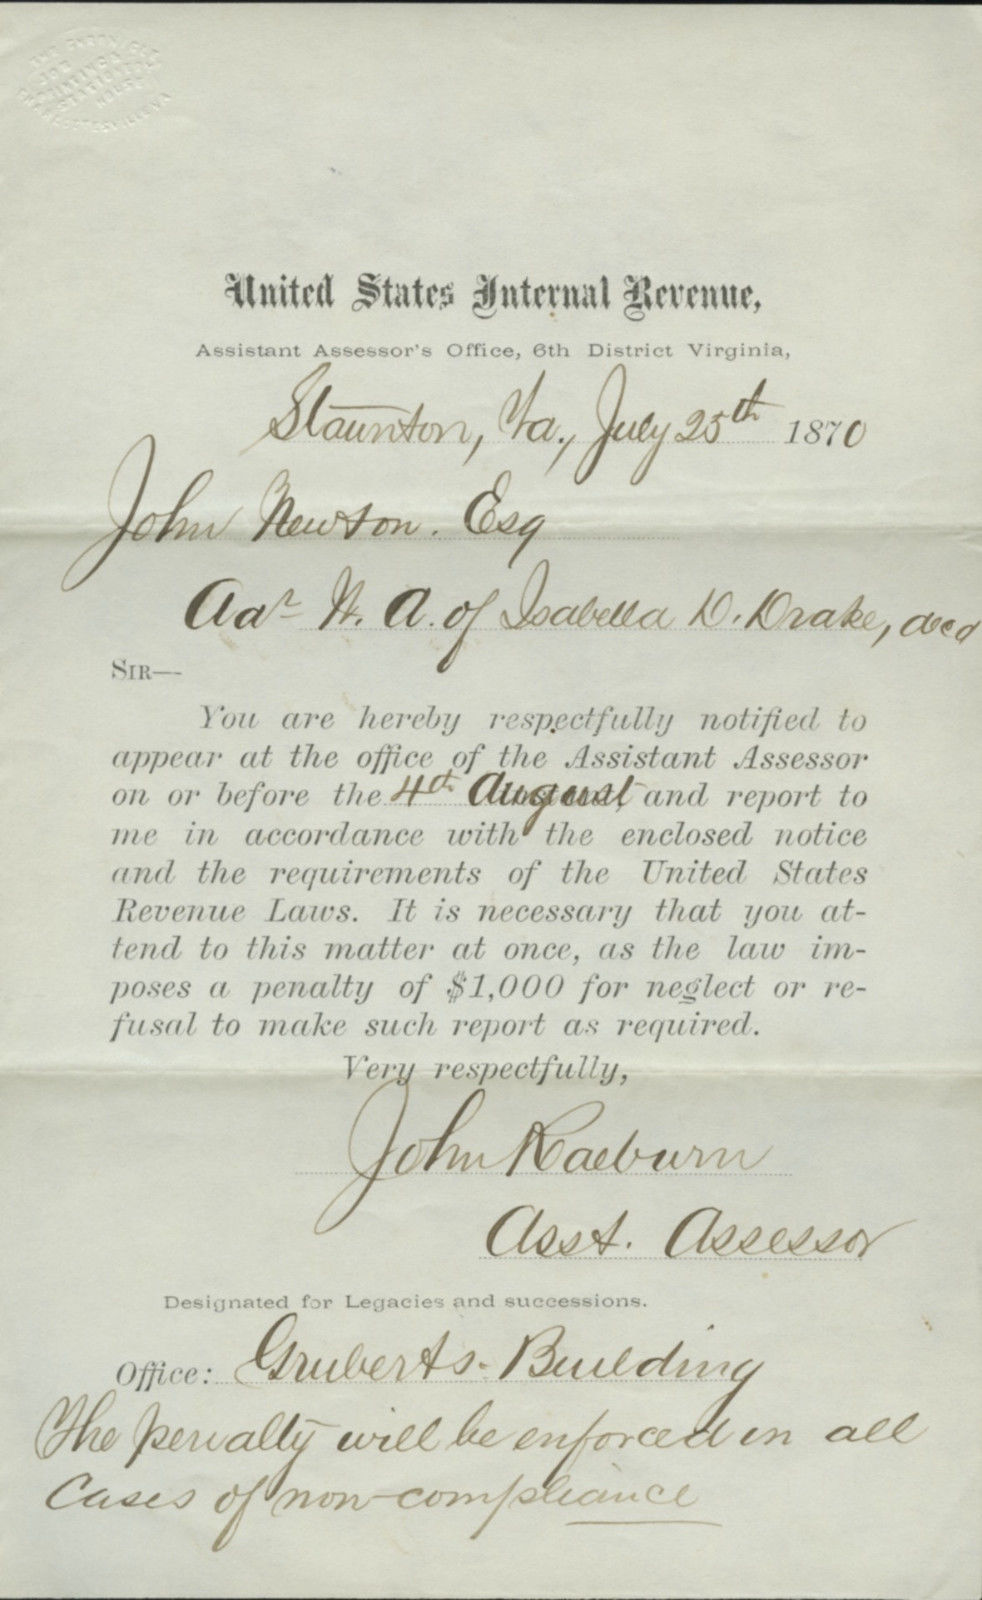 THE CHRONICLE
JOB
PRINTING &
STATIONERY
HOUSE
CHARLOTTESVILLE VA
United States Internal Revenue,
Assistant Assessor's Office, 6th District Virginia,
Staunton, Va., July 25th 1870
John Newton. Esq
Adr W. A. of Isabella D. Drake, decd
SIR—
You are hereby respectfully notified to
appear at the office of the Assistant Assessor
on or before the 4th August, and report to
me in accordance with the enclosed notice
and the requirements of the United States
Revenue Laws. It is necessary that you at-
tend to this matter at once, as the law im-
poses a penalty of $1,000 for neglect or re-
fusal to make such report as required.
Very respectfully,
John Raeburn
Asst. Assessor
Designated for Legacies and successions.
Office: Gruberts-Building
The penalty will be enforced in all
Cases of non-compliance